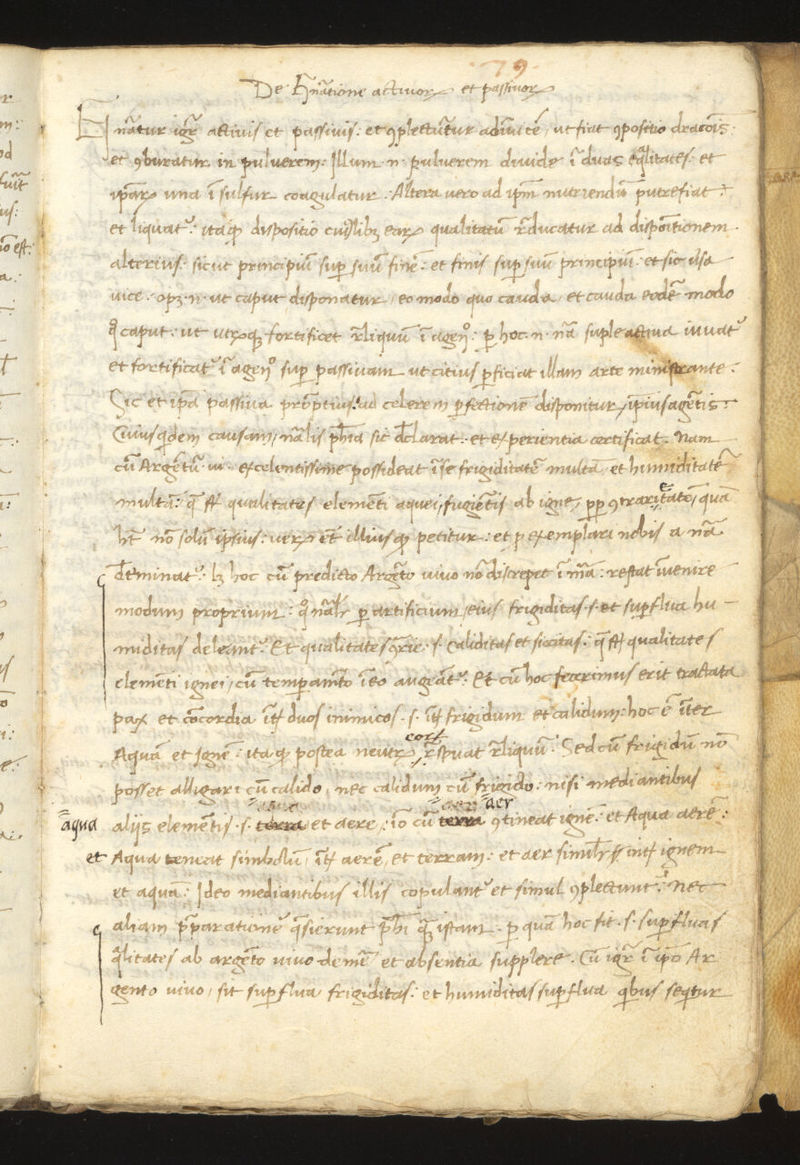 79
De Gnatione actiuor et passiuor
Gnatur igr actiuis et passiuis: et 9plectutur adinuice, ut fiat 9positio draconis:
et 9buratur in puluerem. Illum .n. puluerem diuide i duas qlitates: et
ipar una i sulfur coagulatur. Altera uero ad ipm nutriendu putrefiat:
et liquat: itaq dispositio cuiuslibz ear qualitatu reducatur ad dispositionem
alterius: sicut principiu sup suu fine: et finis sup suu principiu: et sic uersa
uice: opz .n. ut caput disponatur, eo modo quo cauda, et cauda eode modo
q caput: ut utrq fortificet reliquu i agendo: p hoc .n. na actiua iuuat
et fortificat i agendo sup passiuam ut citius pficiat illam arte ministrante:
Sic et ipa passiua promptius ad celerem pfectione disponitur, ipius agentis:
Cuius qdem causam, nalis phia sic declarat: et experientia certificat. Nam
cu Argentu .ui. excelentissime possideat i se frigiditate multa, et humiditate
multa: q st qualitates elementi aquei, fugientis ab igne, pp 9trarietate, qua
ht no solu ipsius: ueru et illius q petitur: et p exemplari nobis a na
deminat: lz hoc cu predicto Argento uiuo no discrepet i ma: restat inuenire
modum proprium: q nalr p artificium, eius frigiditas .s. et supflua hu-
miditas deleant. Et qualitates 9rie .s. Caliditas et siccitas: q st qualitates
elementi ignei, cu tempamento i eo augeant. Et cu hoc fecerimus erit tractata
pax et concordia int duos inimicos .s. int frigidum et calidum: hoc e inter
Aquam et Ignem: ita q postea neutr respuat reliquu. Sed cu frigidu no
posset alligari cu calido, nec calidum cu frigido: nisi mediantibus
aqua alijs elementis .s. terra et aere, io cu aer 9tineat igne: et Aqua aere:
et Aqua teneat simbolu, int aere, et terram: et aer similr int ignem
et aqua: Ideo mediantibus illis copulant et simul 9plectunt: Nec
aliam pparatione qsierunt phi q istam. p qua hoc fit .s. supfluas
qlitates ab argento uiuo deme et absentia supplere. Cu igr i ipo Ar
gento uiuo, sit supflua frigiditas: et humiditas supflua qbus seqtur